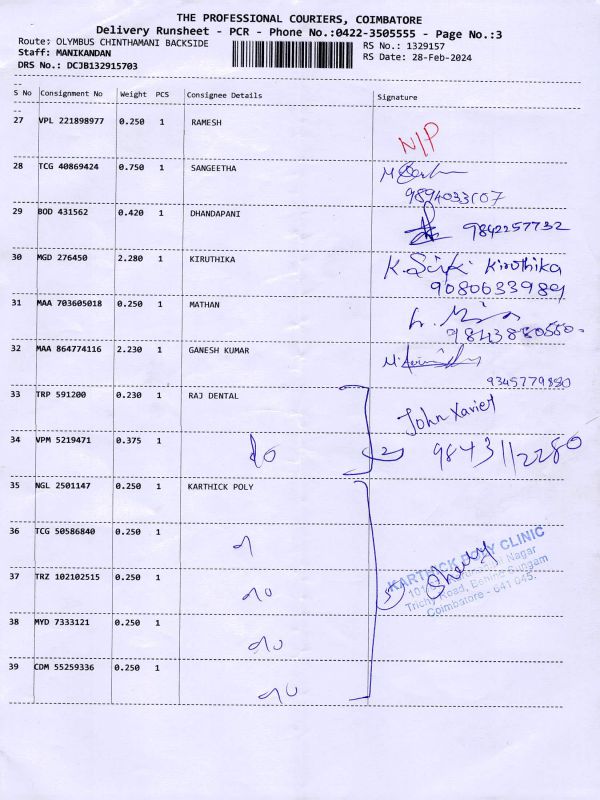 THE PROFESSIONAL COURIERS, COIMBATORE
Delivery Runsheet - PCR - Phone No.:0422-3505555 - Page No.:3
Route: OLYMBUS CHINTHAMANI BACKSIDE
RS No.: 1329157
Staff: MANIKANDAN
RS Date: 28-Feb-2024
DRS No.: DCJB132915703
S No Consignment No Weight PCS Consignee Details Signature
27 VPL 221898977 0.250 1 RAMESH
N/P
28 TCG 40869424 0.750 1 SANGEETHA
29 BOD 431562 0.420 1 DHANDAPANI
9842257732
30 MGD 276450 2.280 1 KIRUTHIKA
Kiruthika
9080633989
31 MAA 703605018 0.250 1 MATHAN
32 MAA 864774116 2.230 1 GANESH KUMAR
33 TRP 591200 0.230 1 RAJ DENTAL
John Xavier
34 VPM 5219471 0.375 1
2
9843112280
35 NGL 2501147 0.250 1 KARTHICK POLY
36 TCG 50586840 0.250 1
KARTHICK POLY CLINIC
37 TRZ 102102515 0.250 1
5
Coimbatore - 641 045.
38 MYD 7333121 0.250 1
39 CDM 55259336 0.250 1